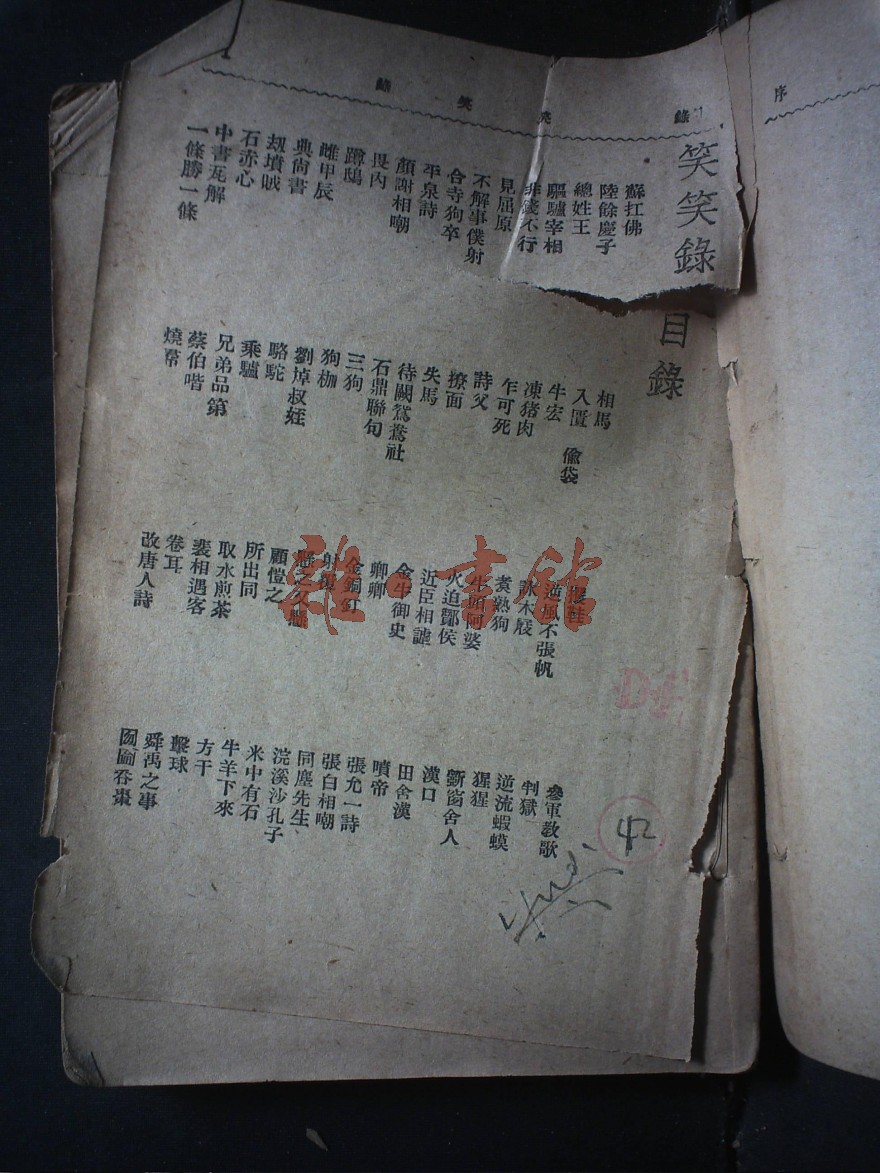 序
目錄
笑笑錄
笑笑錄 目錄
蘇扛佛
陸餘慶子
總姓王
驅驢宰相
非錢不行
見屈原
不解事僕射
合寺狗卒
平泉詩
顏謝相嘲
畏內
蹲鴟
雌甲辰
典尙書
刼墳賊
石赤心
中書瓦解
一條勝一條
相馬
入匱
偸袋
牛宏
凍猪肉
乍可死
詩父
撩面
失馬
待闕鴛鴦社
石鼎聯句
三狗
狗枷
劉焯叔姪
駱駝
乘驢
兄弟品第
蔡伯喈
燒帬
逆風不張帆
詠木屐
煑熟狗
牛頭阿婆
火迫酇侯
近臣相謔
金牛御史
卿卿
金銅釘
射覆
顧愷之
所出同
取水煎茶
裴相遇客
卷耳
改唐人詩
參軍敎歌
判獄
逆流蝦蟆
猩猩
斲窗舍人
漢口
田舍漢
噴帝
張允一詩
張白相嘲
同塵先生
浣溪沙孔子
米中有石
牛羊下來
方干
擊球
舜禹之事
囫圇吞棗
雜·書館
42